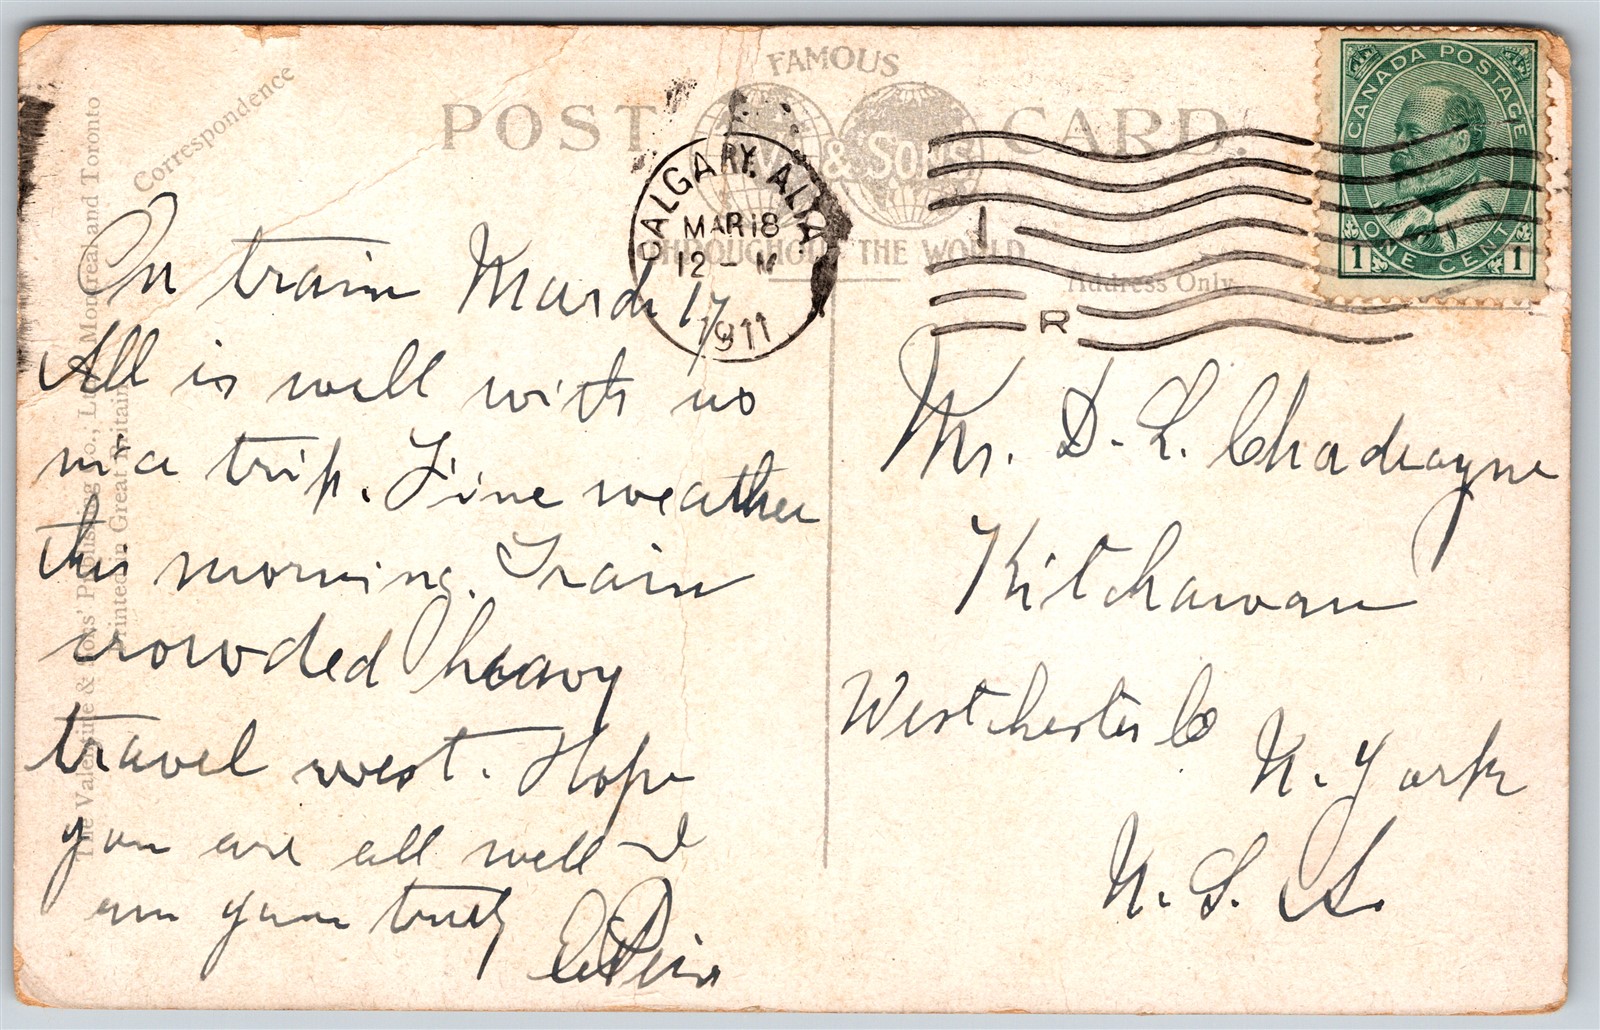 FAMOUS
POST CARD.
& SONS
THROUGHOUT THE WORLD
Correspondence
Address Only
The Valentine & Sons' Publishing Co., Ltd. Montreal and Toronto
Printed in Great Britain
CALGARY. ALTA
MAR 18
12 - M
1911
R
CANADA POSTAGE
1 ONE CENT 1
On train March 17
All is well with us
in a trip. Fine weather
this morning. Train
crowded heavy
travel west. Hope
you are all well - I
am yours truly
Mr. D. L. Chadeayne
Kitchawan
Westchester Co
N. York
U. S. A.